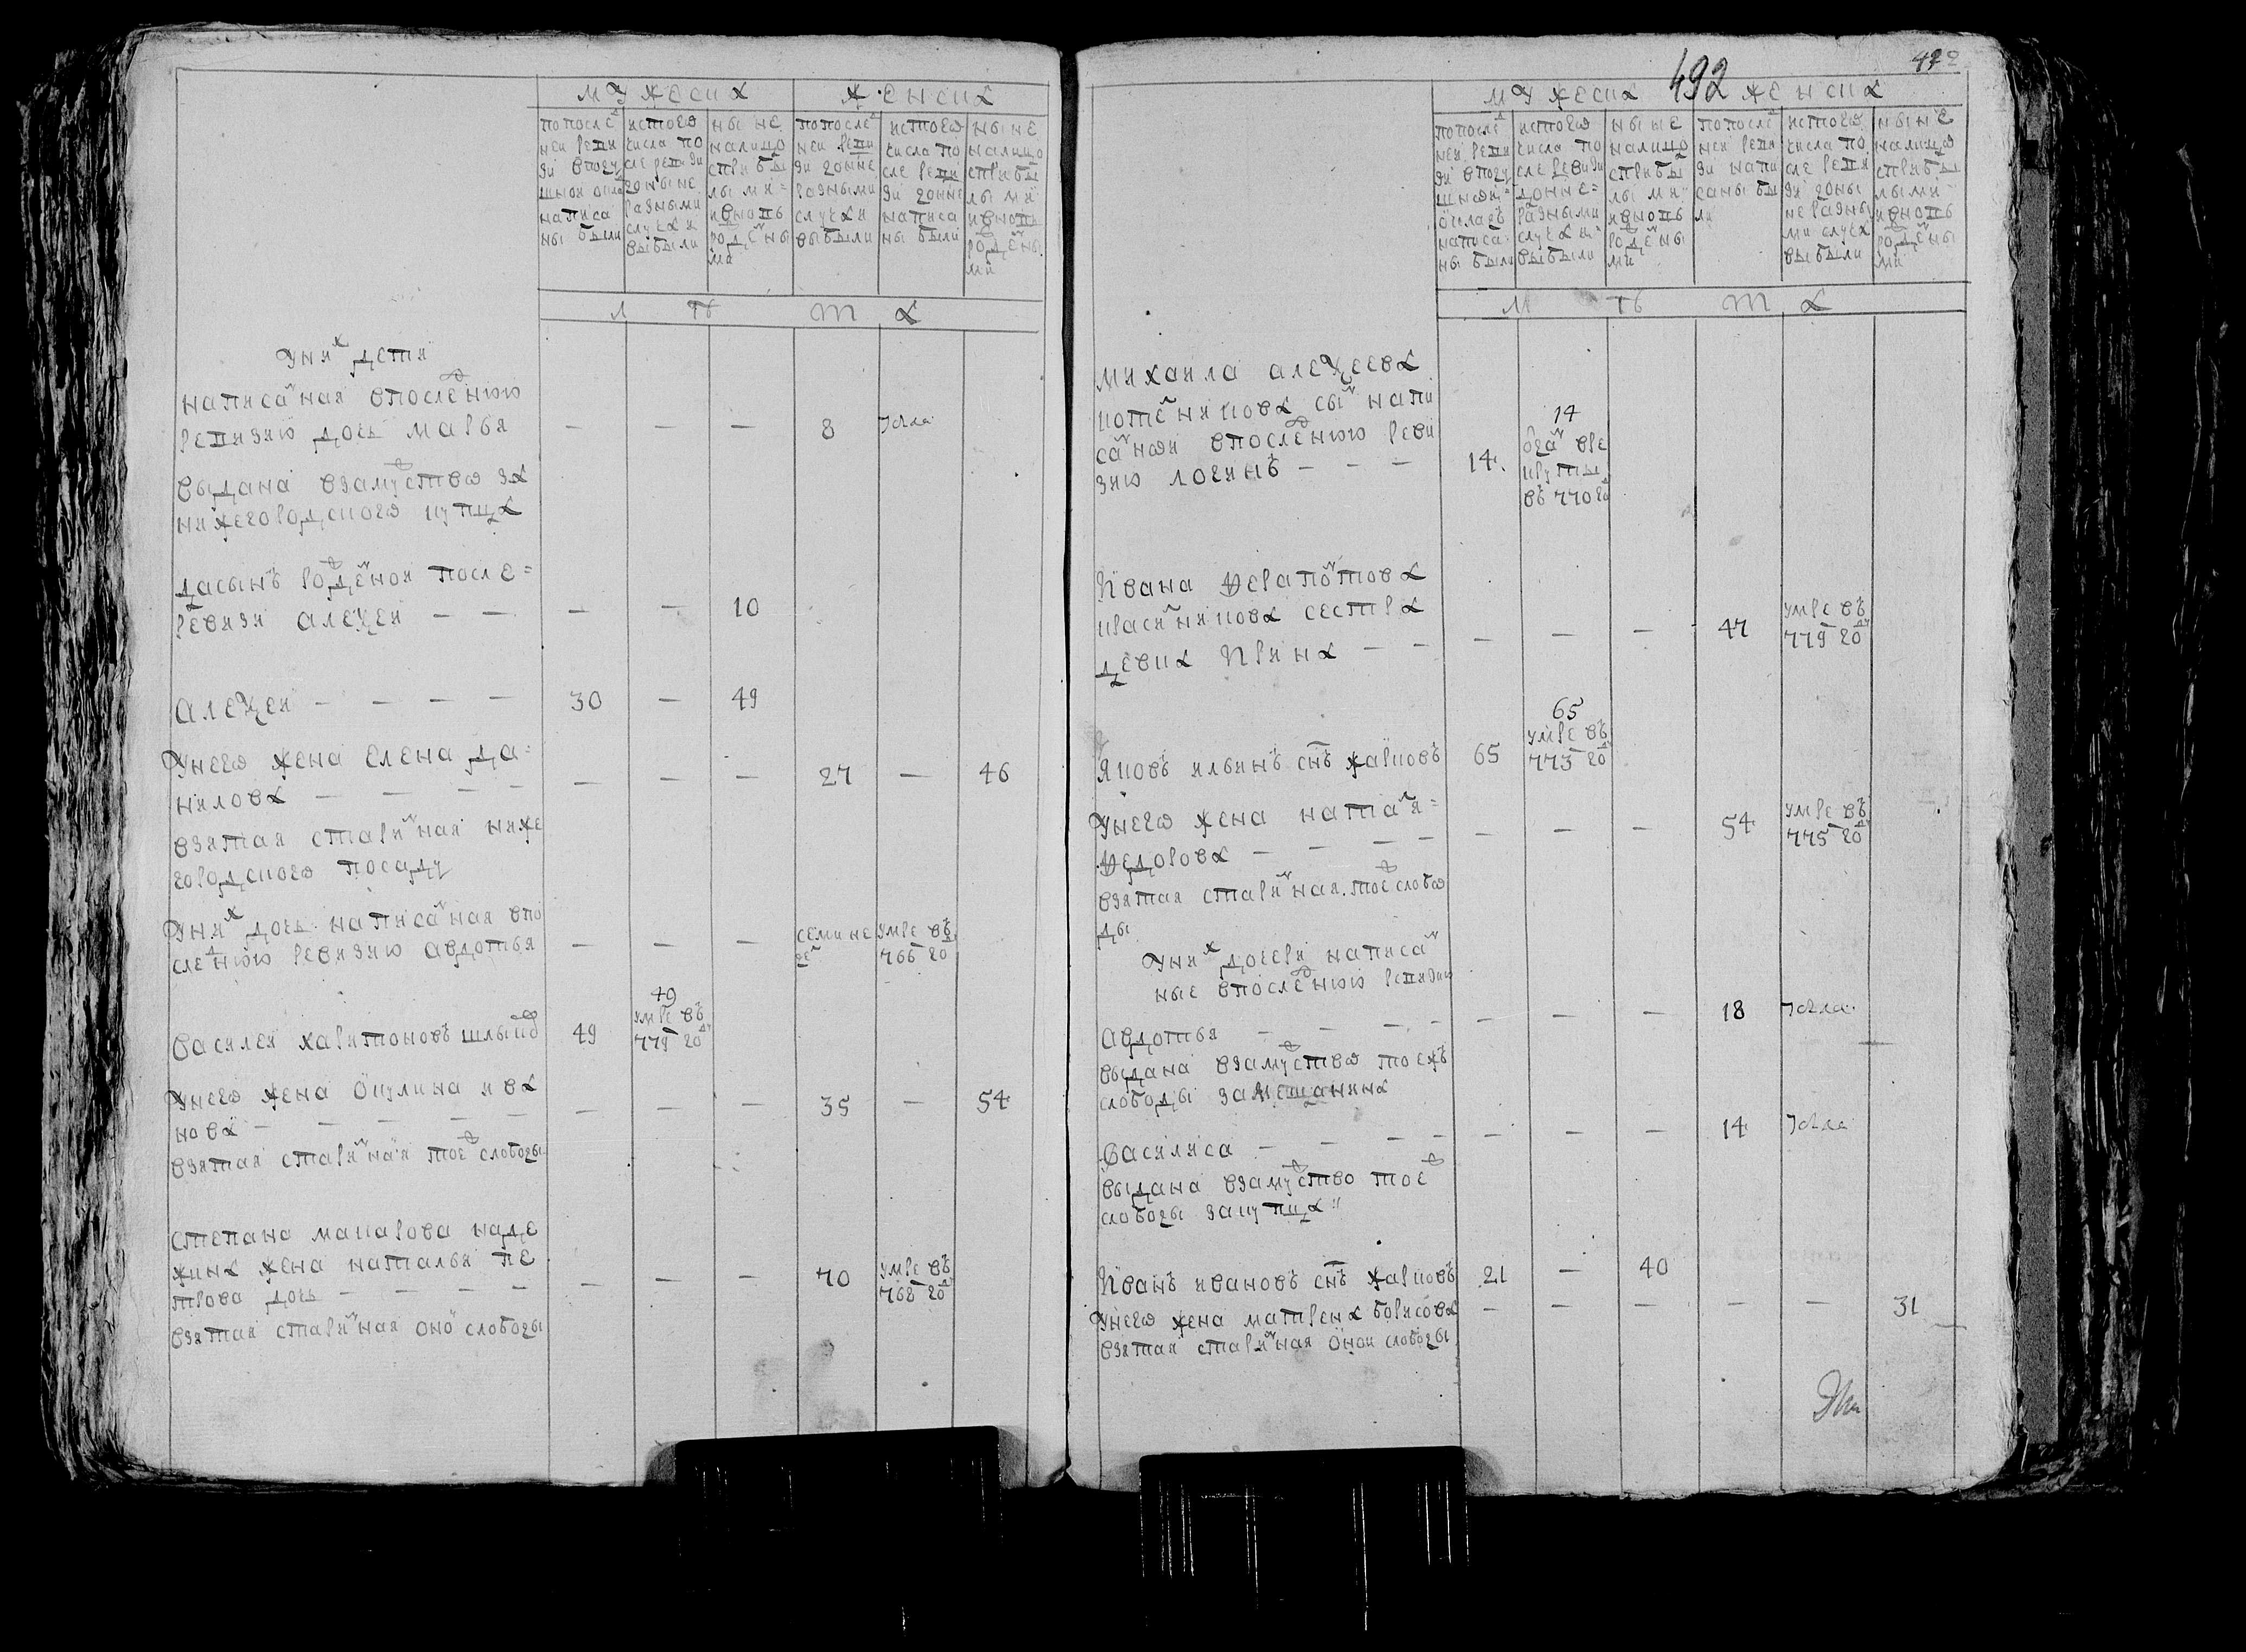 мужеска
женска
попослед
ней реви
зи вподу
шном окла
написа
ны были
истого
числа по
сле ревизи
доныне
разными
случаи
выбыли
ныне
налицо
сприбы
лыми
ивновь
рожденны
ми
попослед
ней реви
зи доныне
разными
случаи
выбыли
истого
числа по
сле реви
зи доныне
написа
ны были
ныне
налицо
сприбы
лыми
ивновь
рожденны
ми
лета
уних дети
написанная впоследнюю
ревизию дочь марья — — — 8
выдана взамужство за
нижегородского купца
дасынъ рожденной после
ревизи алексей — — — — 10
алексей — — — — 30 — 49
унего жена елена да
нилова — — — — — — — 27 — 46
взятая старинная ниже
городского посаду
уних дочь написанная впо
следнюю ревизию авдотья — — — семи не
дель
умре въ
766 год
василей харитоновъ 49
49
умре въ
779 году
унего жена окулина ива
нова — — — — — — — 35 — 54
взятая старинная тоеж слободы
степана макарова наде
жина жена наталья пе
трова дочь — — — — — — — 70
умре въ
768 году
взятая старинная оной слободы
492
мужеска
женска
попослед
ней реви
зи вподу
шном
окладъ
написа
ны были
истого
числа по
сле ревизи
доныне
разными
случаи
выбыли
ныне
налицо
сприбы
лыми
ивновь
рожденны
ми
попослед
ней реви
зи напи
саны бы
ли
истого
числа по
сле реви
зи доны
не разны
ми случа
выбыли
ныне
налицо
сприбы
лыми
ивновь
рожденны
ми
лета
михаила алексеева
котельникова сын напи
санной впоследнюю реви
зию логинъ — — — 14
14
отдан вре
круты
въ 770 год
Ивана ферапонтова
красильникова сестра
девка Ирина — — — — — 47
умре въ
779 году
Яковъ ильинъ снъ жарковъ 65
65
умре въ
773 году
унего жена наталья
федорова — — — — — — — 54
умре въ
775 году
взятая старинная тоеж слобо
ды
уних дочери написан
ные впоследнюю ревизию
авдотья — — — — — — — 18
выдана взамужство тоежъ
слободы замещанина
василиса — — — — — — — 14
выдана взамужство тоеж
слободы закупца
Иванъ ивановъ снъ жарковъ 21 — 40
унего жена матрена борисова — — — — — 31
взятая старинная оной слободы